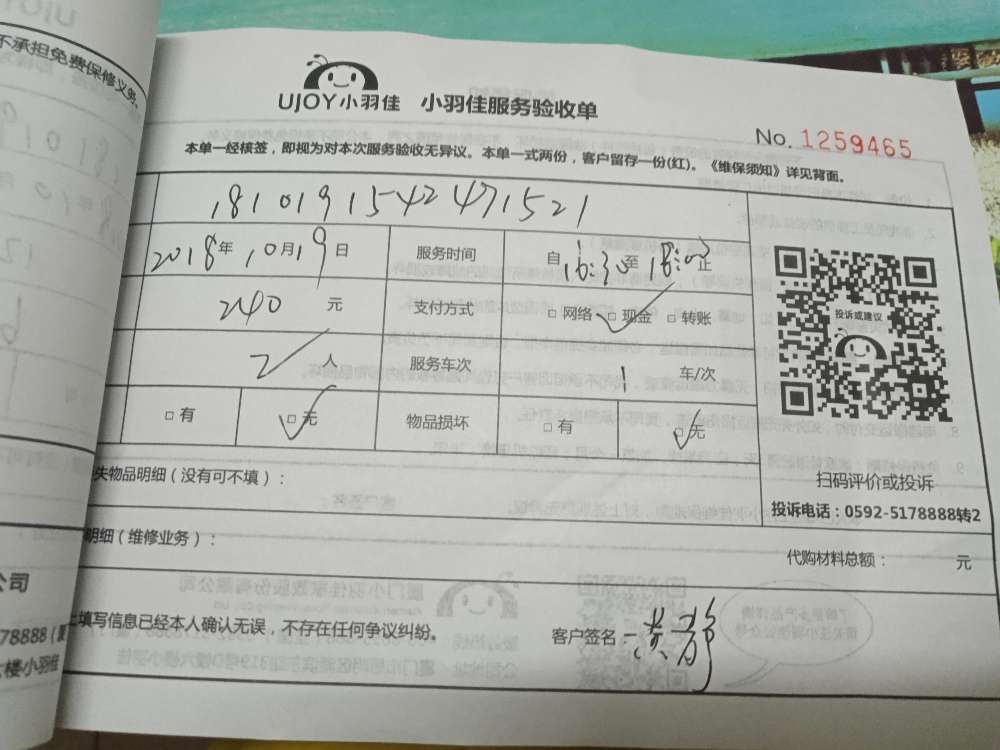 不承担免费保修义务,
UJOY小羽佳 小羽佳服务验收单
No. 1259465
本单一经核签，即视为对本次服务验收无异议。本单一式两份，客户留存一份(红)。《维保须知》详见背面。
181019154247 1521
2018年 10月 19日 服务时间 自 16:30 至 18:00 止
240 元 支付方式 □ 网络 □ 现金 □ 转账
2 人 服务车次 1 车/次
□ 有 □ 无 物品损坏 □ 有 □ 无
投诉或建议
扫码评价或投诉
投诉电话：0592-5178888转2
失物品明细（没有可不填）：
明细（维修业务）： 代购材料总额： 元
填写信息已经本人确认无误，不存在任何争议纠纷。 客户签名
公司
78888（厦
楼小羽佳